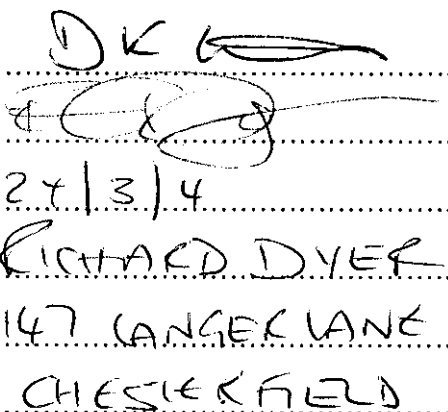 DK
24/3/4
RICHARD DYER
147 LANGER LANE
CHESTERFIELD